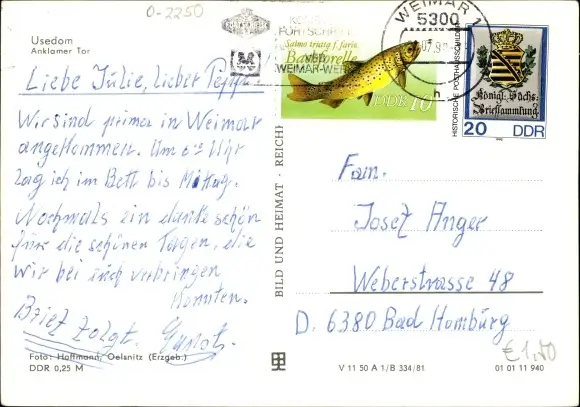 0-2250
Usedom
Anklamer Tor
Liebe Julie, Lieber Peppi
Wir sind prima in Weimar
angekommen. Um 6°° Uhr
lag ich im Bett bis Mittag.
Nochmals ein danke schön
für die schönen Tagen, die
wir bei euch verbringen
konnten.
Brief folgt.
Foto: Hoffmann, Oelsnitz (Erzgeb.)
DDR 0,25 M
BILD UND HEIMAT · REICHE
FORTSCHRITT
VEB
WEIMAR-WERK
WEIMAR 1
5300
h
Salmo trutta f. fario
Bachforelle
DDR 10
HISTORISCHE POSTHAUSSCHILDER
Königl. Sächs.
Briefsammlung
20 DDR
Fam.
Josef Anger
Weberstrasse 48
D. 6380 Bad Homburg
€1,40
V 11 50 A 1/B 334/81
01 01 11 940